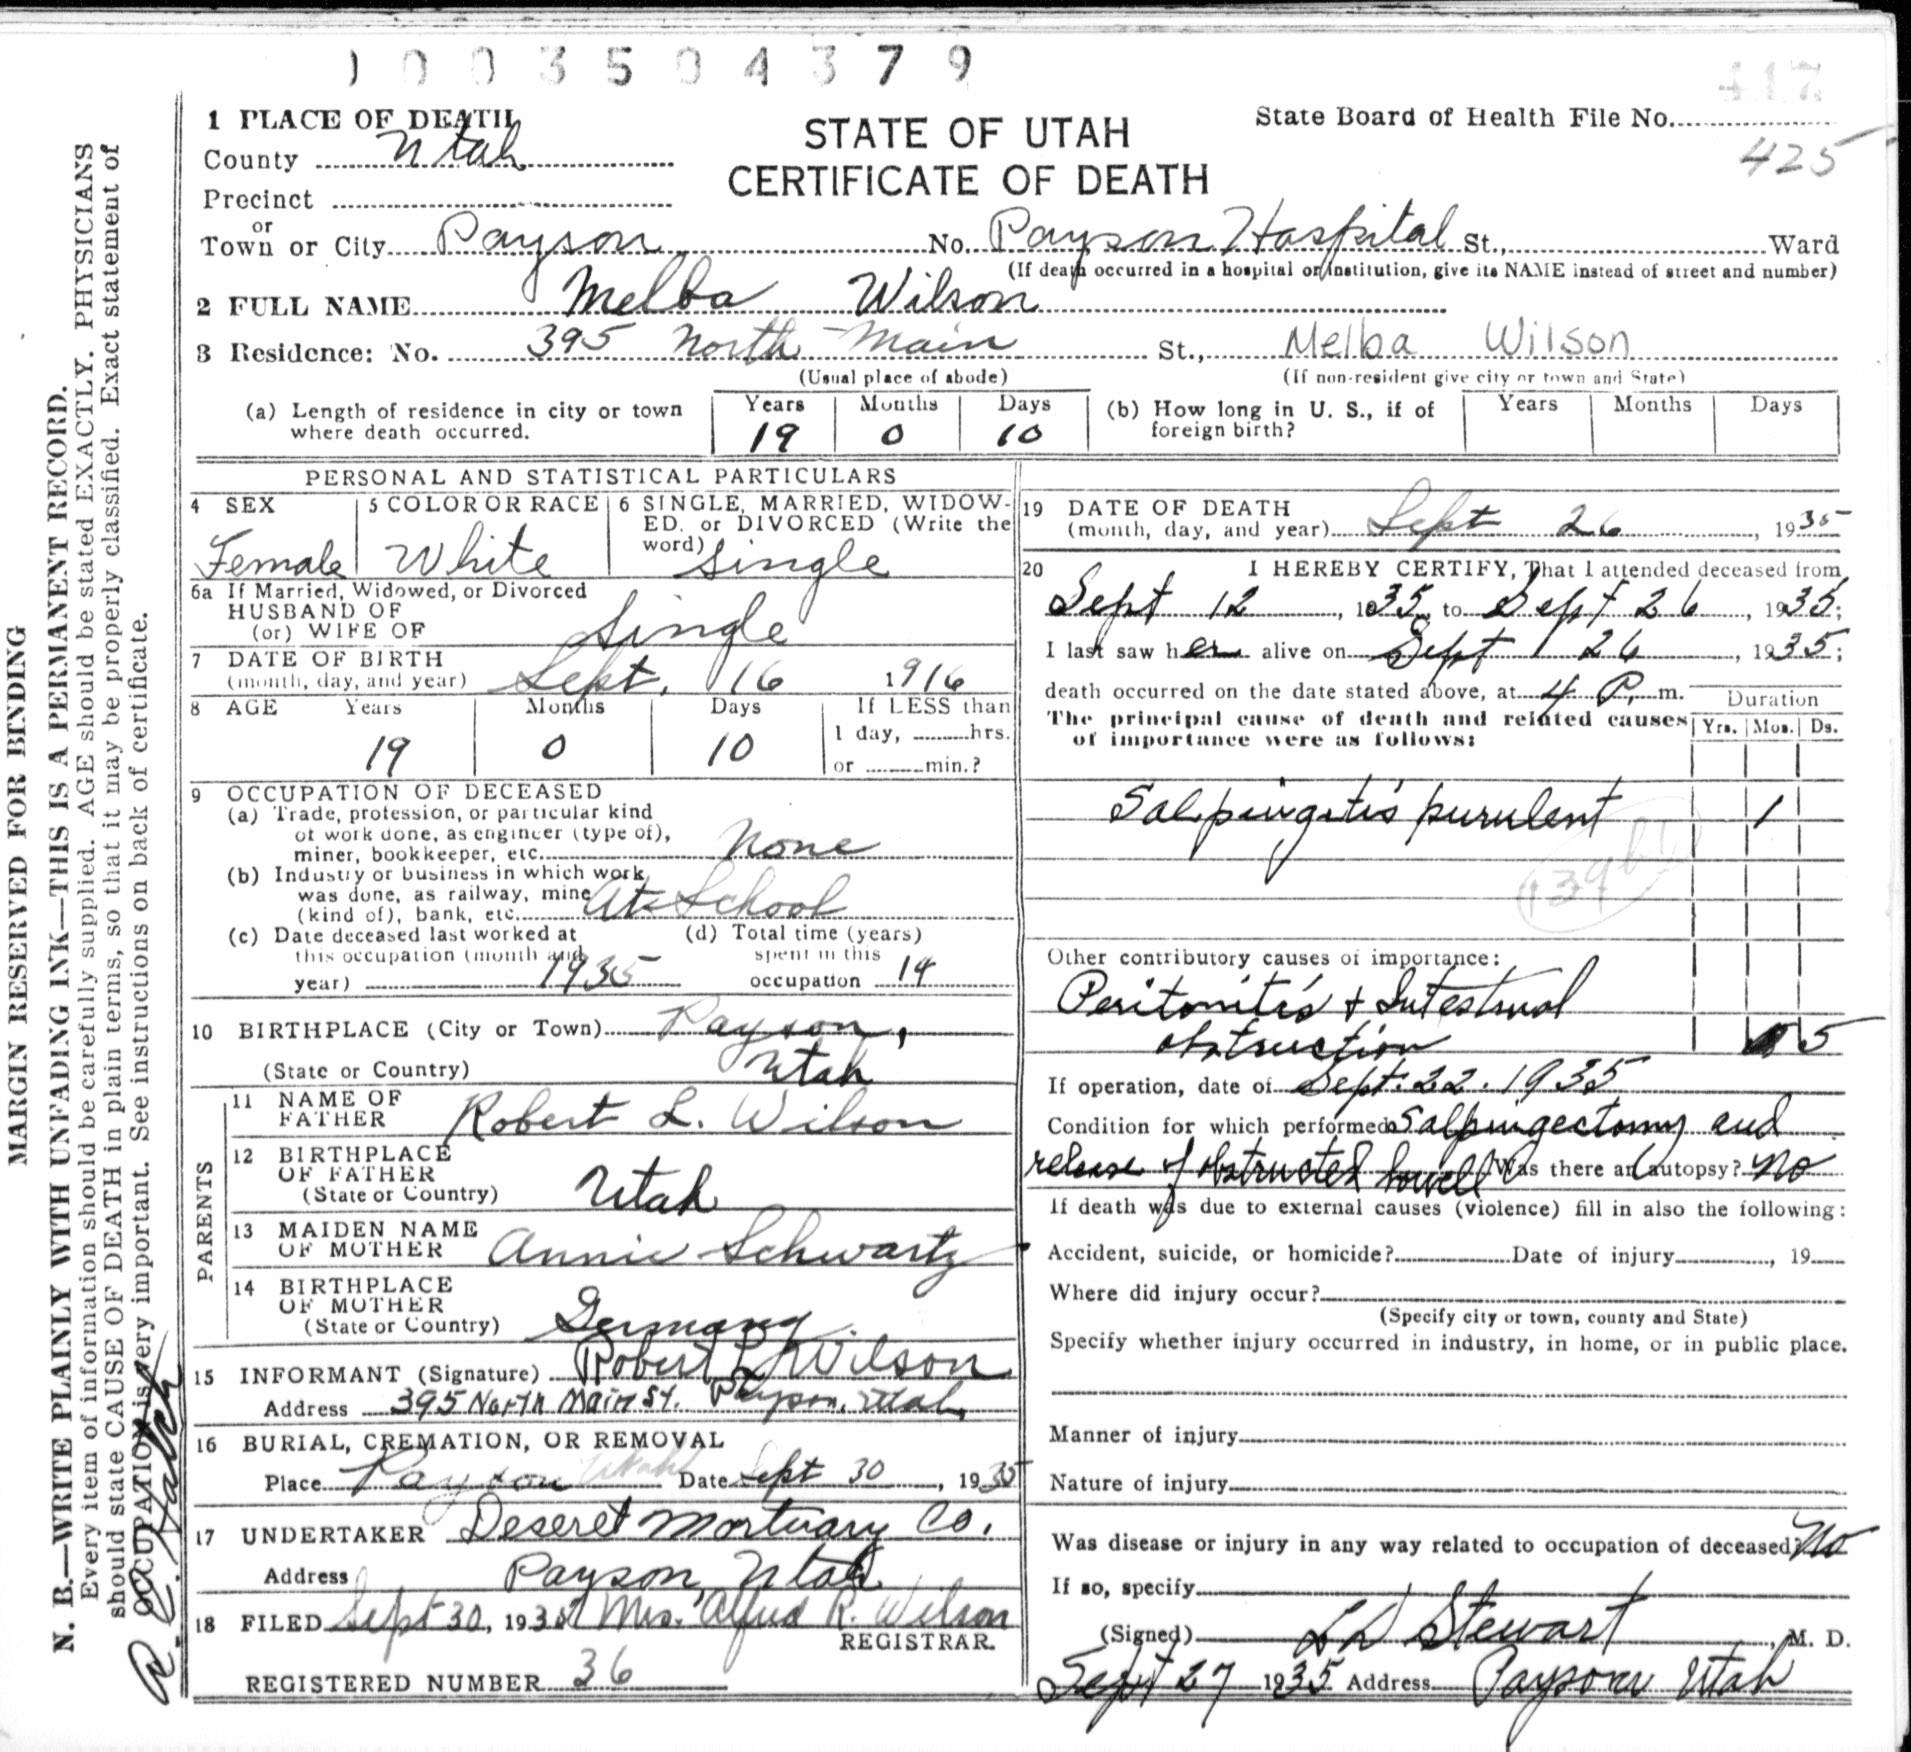 1003504379
417
1 PLACE OF DEATH
STATE OF UTAH
State Board of Health File No.
County Utah
425
CERTIFICATE OF DEATH
Precinct
or
Town or City Payson No. Payson Hospital St., Ward
(If death occurred in a hospital or institution, give its NAME instead of street and number)
2 FULL NAME Melba Wilson
3 Residence: No. 395 North Main St., Melba Wilson
(Usual place of abode) (If non-resident give city or town and State)
(a) Length of residence in city or town where death occurred. Years 19 Months 0 Days 10
(b) How long in U. S., if of foreign birth? Years Months Days
PERSONAL AND STATISTICAL PARTICULARS
4 SEX Female
5 COLOR OR RACE White
6 SINGLE, MARRIED, WIDOW-
ED, or DIVORCED (Write the
word) Single
6a If Married, Widowed, or Divorced
HUSBAND OF
(or) WIFE OF Single
7 DATE OF BIRTH
(month, day, and year) Sept. 16 1916
8 AGE Years Months Days If LESS than
19 0 10 1 day, hrs.
or min.?
9 OCCUPATION OF DECEASED
(a) Trade, profession, or particular kind
of work done, as engineer (type of),
miner, bookkeeper, etc. None
(b) Industry or business in which work
was done, as railway, mine
(kind of), bank, etc. At School
(c) Date deceased last worked at
this occupation (month and
year) 1935
(d) Total time (years)
spent in this
occupation 14
10 BIRTHPLACE (City or Town) Payson,
(State or Country) Utah
PARENTS
11 NAME OF
FATHER Robert L. Wilson
12 BIRTHPLACE
OF FATHER
(State or Country) Utah
13 MAIDEN NAME
OF MOTHER Annie Schwartz
14 BIRTHPLACE
OF MOTHER
(State or Country) Germany
15 INFORMANT (Signature) Robert L Wilson
Address 395 North Main St. Payson, Utah
16 BURIAL, CREMATION, OR REMOVAL
Place Payson Utah Date Sept 30, 1935
17 UNDERTAKER Deseret Mortuary Co.
Address Payson, Utah
18 FILED Sept 30, 1935 Mrs. Alfred R. Wilson
REGISTRAR.
REGISTERED NUMBER 36
19 DATE OF DEATH
(month, day, and year) Sept 26, 1935
20 I HEREBY CERTIFY, That I attended deceased from
Sept 12, 1935, to Sept 26, 1935;
I last saw her alive on Sept 26, 1935;
death occurred on the date stated above, at 4 P. m.
Duration
The principal cause of death and related causes
of importance were as follows:
Yrs. Mos. Ds.
Salpingitis purulent 1
Other contributory causes of importance:
Peritonitis + Intestinal
obstruction 5
If operation, date of Sept. 22. 1935
Condition for which performed Salpingectomy and
release of obstructed bowell Was there an autopsy? No
If death was due to external causes (violence) fill in also the following:
Accident, suicide, or homicide? Date of injury, 19
Where did injury occur?
(Specify city or town, county and State)
Specify whether injury occurred in industry, in home, or in public place.
Manner of injury
Nature of injury
Was disease or injury in any way related to occupation of deceased? No
If so, specify
(Signed) L D Stewart, M. D.
Sept 27 1935 Address Payson Utah
MARGIN RESERVED FOR BINDING
N. B.—WRITE PLAINLY WITH UNFADING INK—THIS IS A PERMANENT RECORD.
Every item of information should be carefully supplied. AGE should be stated EXACTLY. PHYSICIANS
should state CAUSE OF DEATH in plain terms, so that it may be properly classified. Exact statement of
OCCUPATION is very important. See instructions on back of certificate.